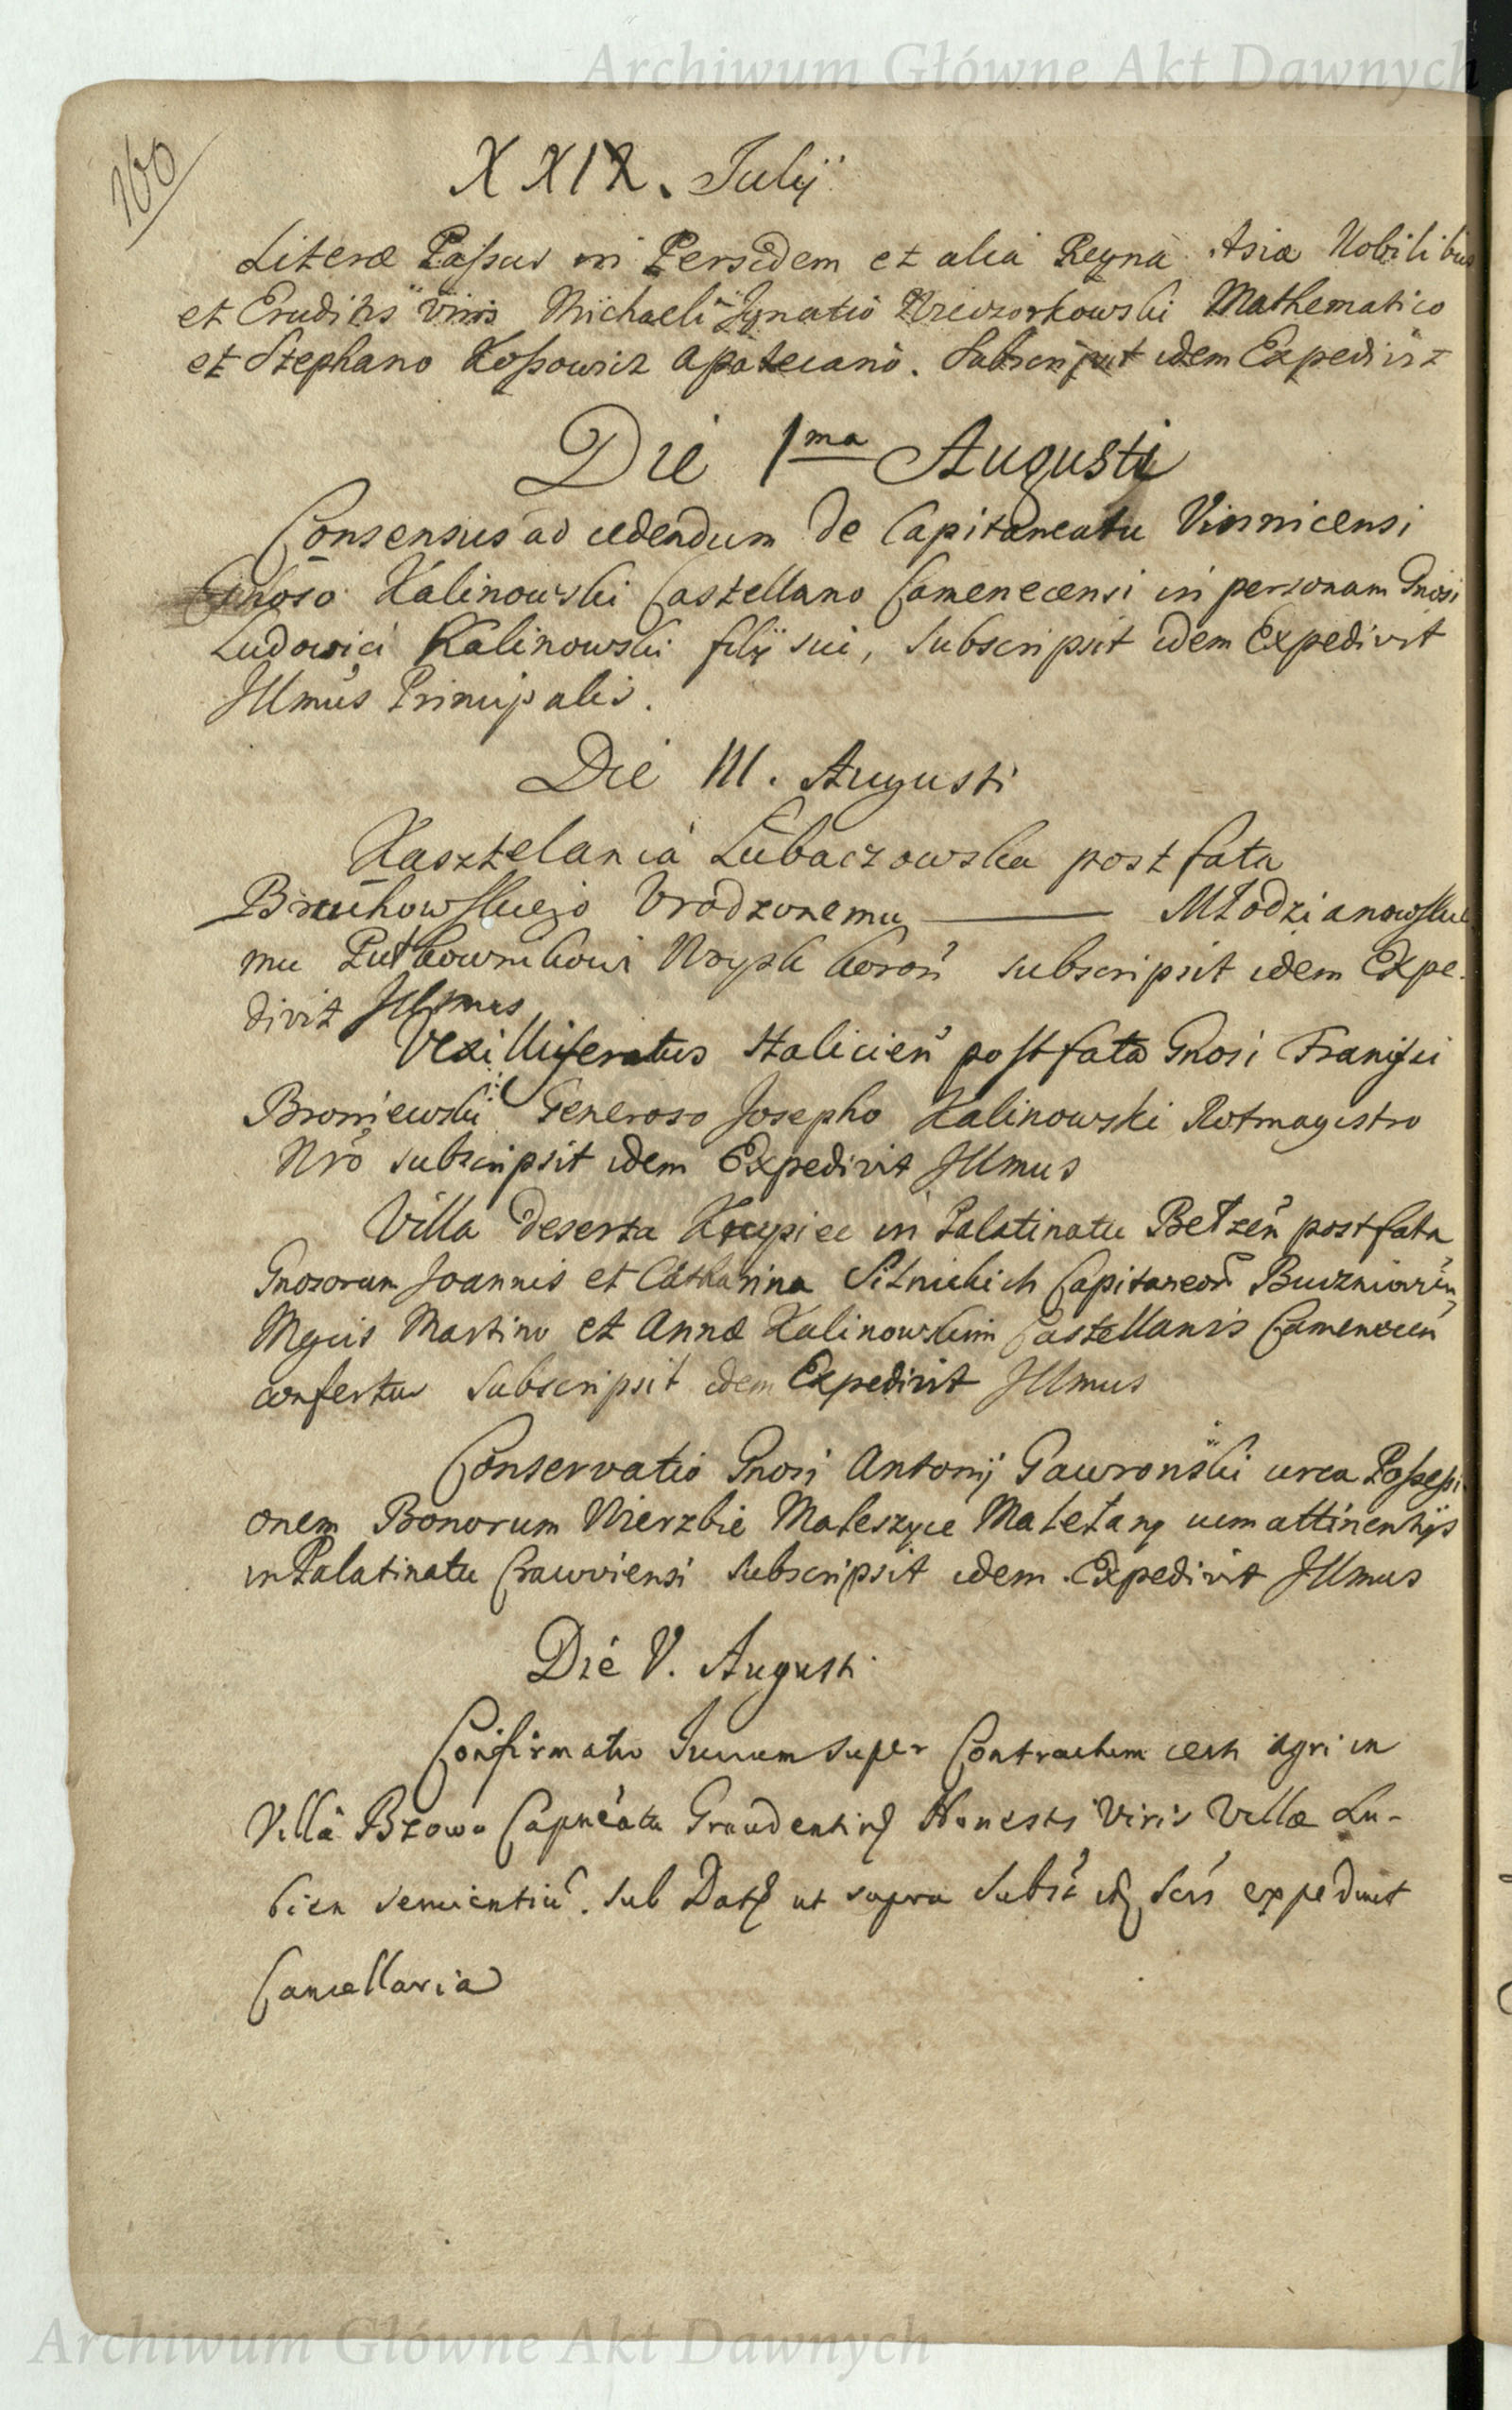 Archiwum Główne Akt Dawnych
160
XXIX. Julij
Literæ Paſsus in Persidem et alia Regna Asiæ Nobilibus
et Eruditis Viris Michaeli Ignatio Mathematico
et Stephano Koſsowicz Apatecario. Subscripsit idem Expedivit
Die 1ma Augusti
Consensus ad cedendum de Capitaneatu Vinnicensi
Kalinowski Castellano Camenecensi in personam Gnosi
Ludovici Kalinowski filij sui, Subscripsit idem Expedivit
Illmus Principalis.
Die III. Augusti
Kasztelania Lubaczowska post fata
Urodzonemu ——— Młodzianowskie
mu Pułkownikowi Woysk koroń subscripsit idem Expe-
divit Illmus
Vexilliferatus Halicień post fata Gnosi Francisci
Broniewski Generoso Josepho Kalinowski Rotmagistro
Nro subscripsit idem Expedivit Illmus
Villa deserta Krupiec in Palatinatu Bełzeń post fata
Gnosorum Joannis et Catharina Silnickich Capitaneor
Mgcis Martino et Annæ Kalinowskim Castellanis Camenecen
confertur Subscripsit idem Expedivit Illmus
Conservatio Gnosi Antonij Gawronski circa Poſseſsi
onem Bonorum Wierzbie Maleszyce Małetany cum attinentijs
in Palatinatu Cracoviensi Subscripsit idem Expedivit Illmus
Die V. Augusti
Confirmatio Jurium super Contractum certi agri in
Villa Bzowo Capneatu Honestis Viris Villæ Lu-
bien servientiu. sub Datt ut supra Subst Scrs expedivit
Cancellaria
Archiwum Główne Akt Dawnych